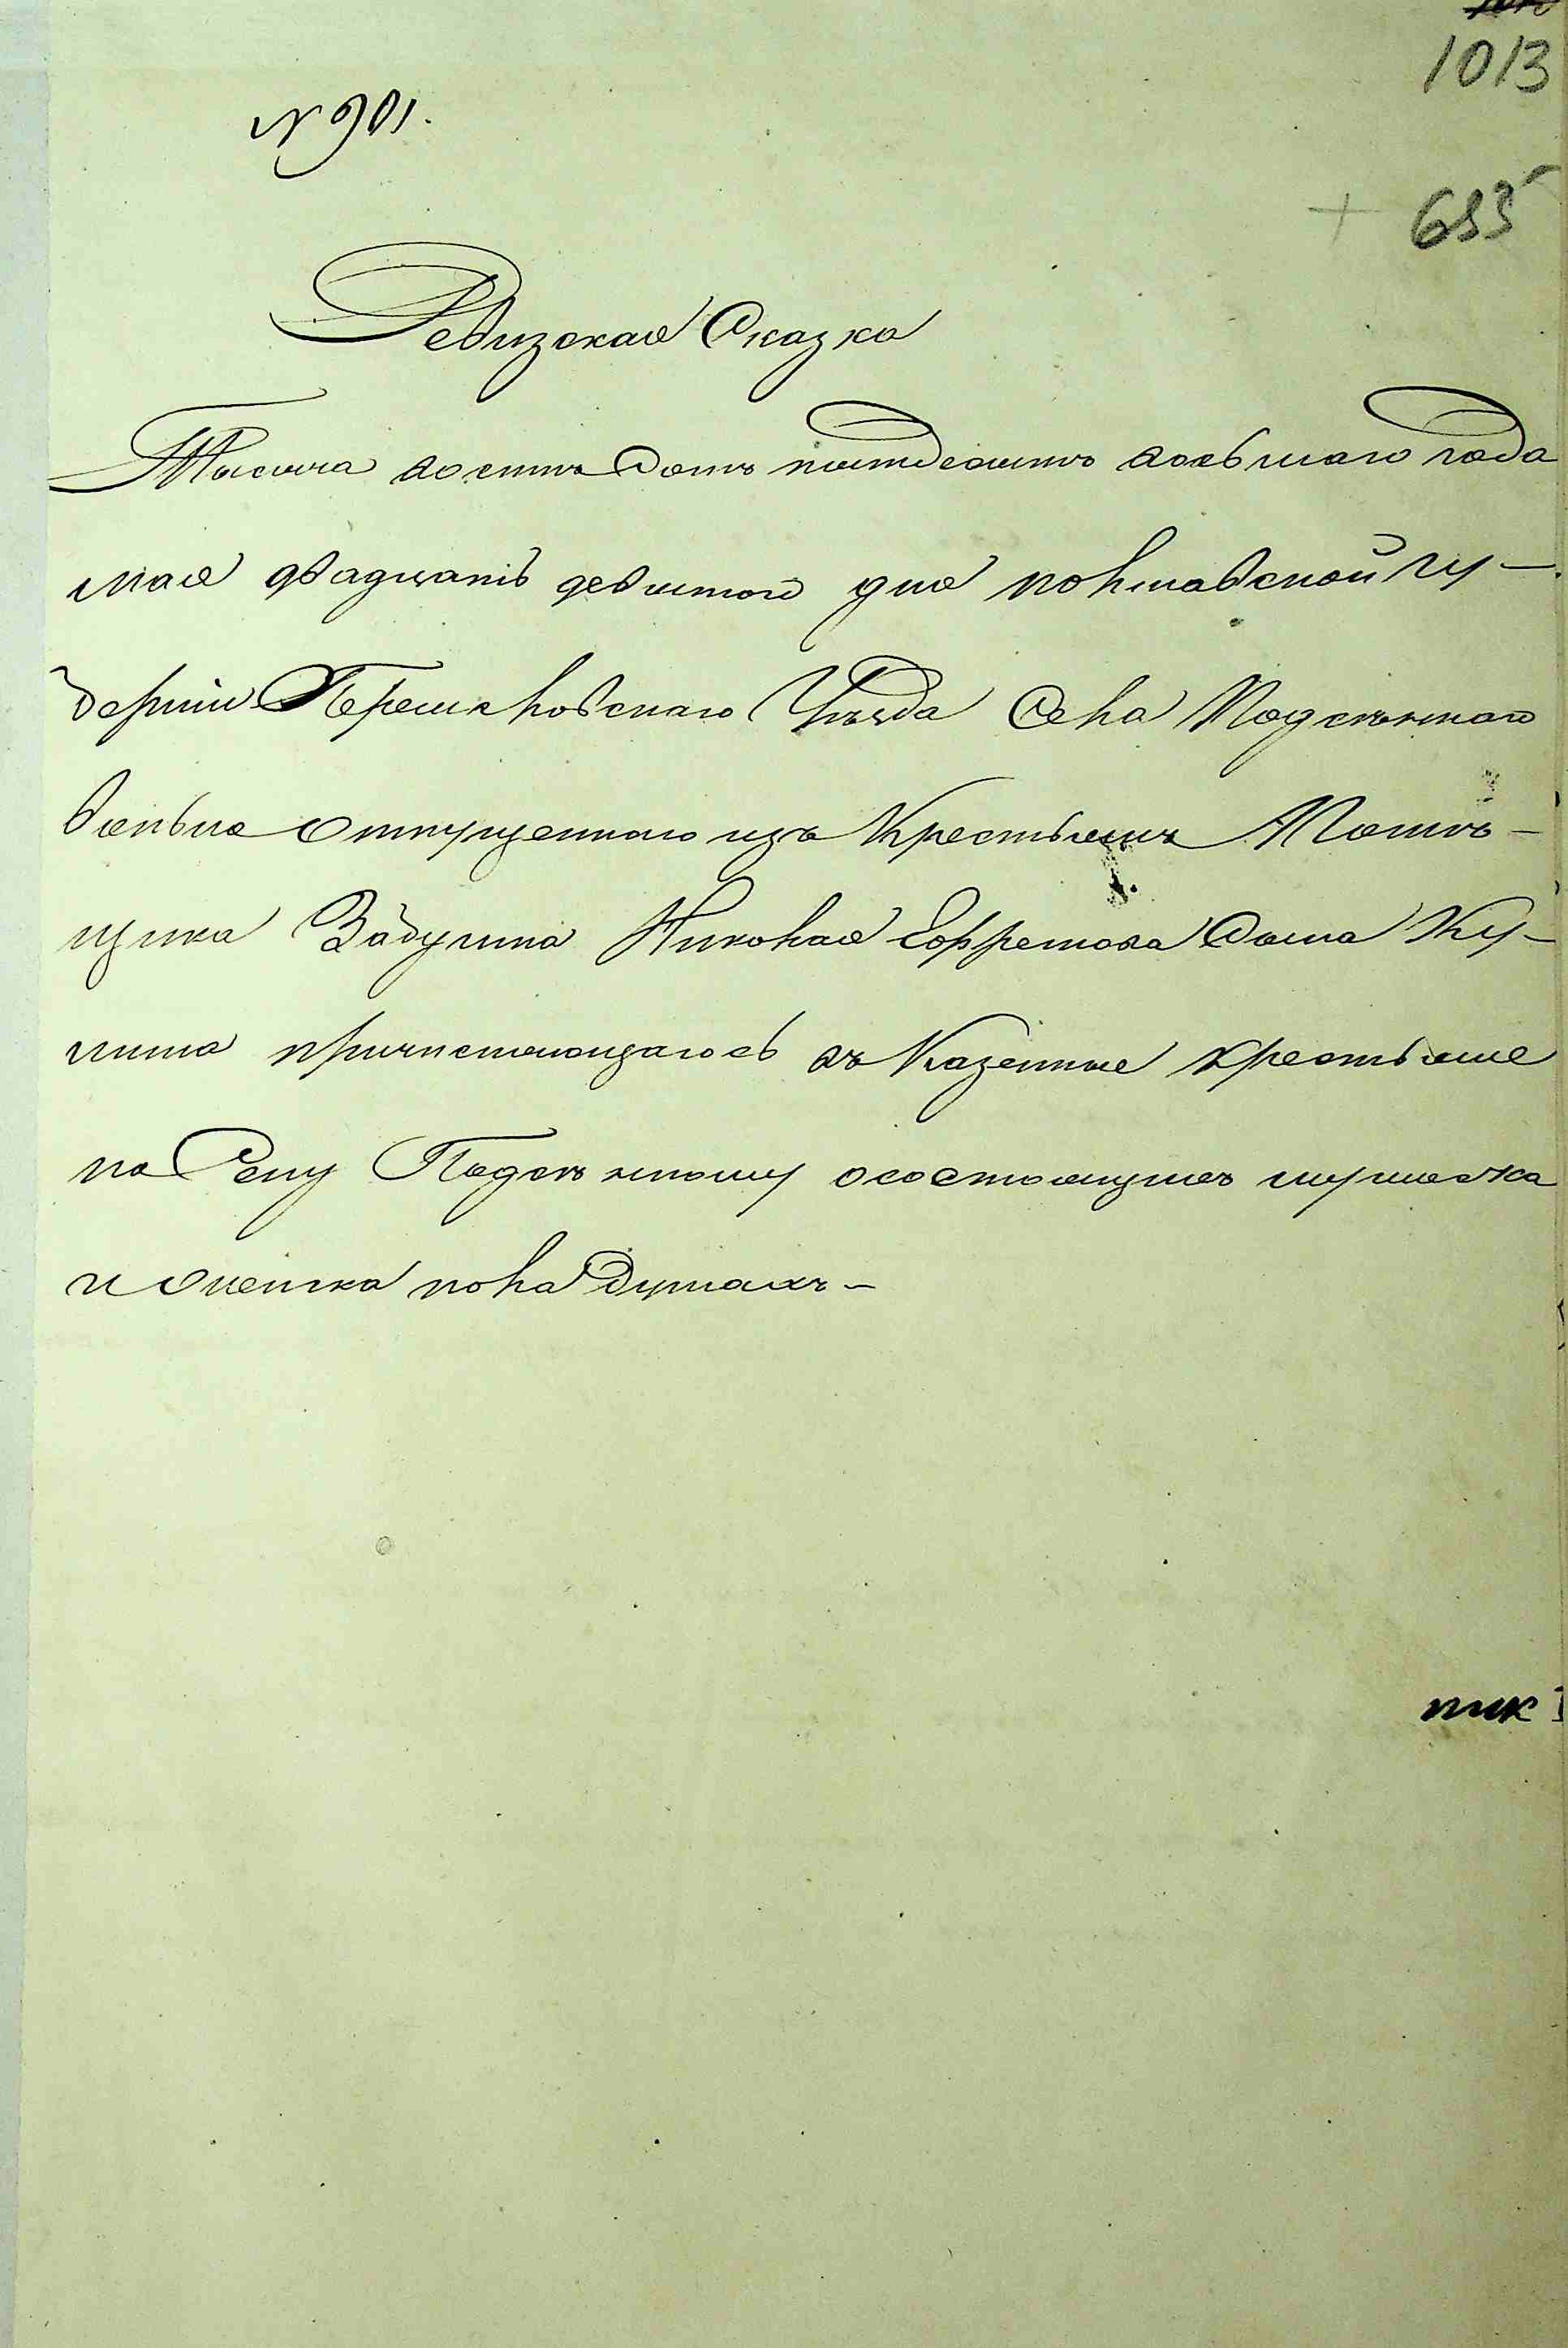 1013
№ 901.
635
Ревизская Сказка
Тысяча восемъ Сотъ пятдесятъ восьмаго года
мая двадцать девятого дня полтавской гу-
берніи Переясловскаго Уѣзда Села Подсѣннаго
вѣльна Отпущеннаго изъ Крестьянъ
щика Николая Ефремова Сына Ку-
причисляющагось въ Казенные крестьяне
по Селу Подсѣнному осостоящихъ мужеска
и женска пола душахъ-